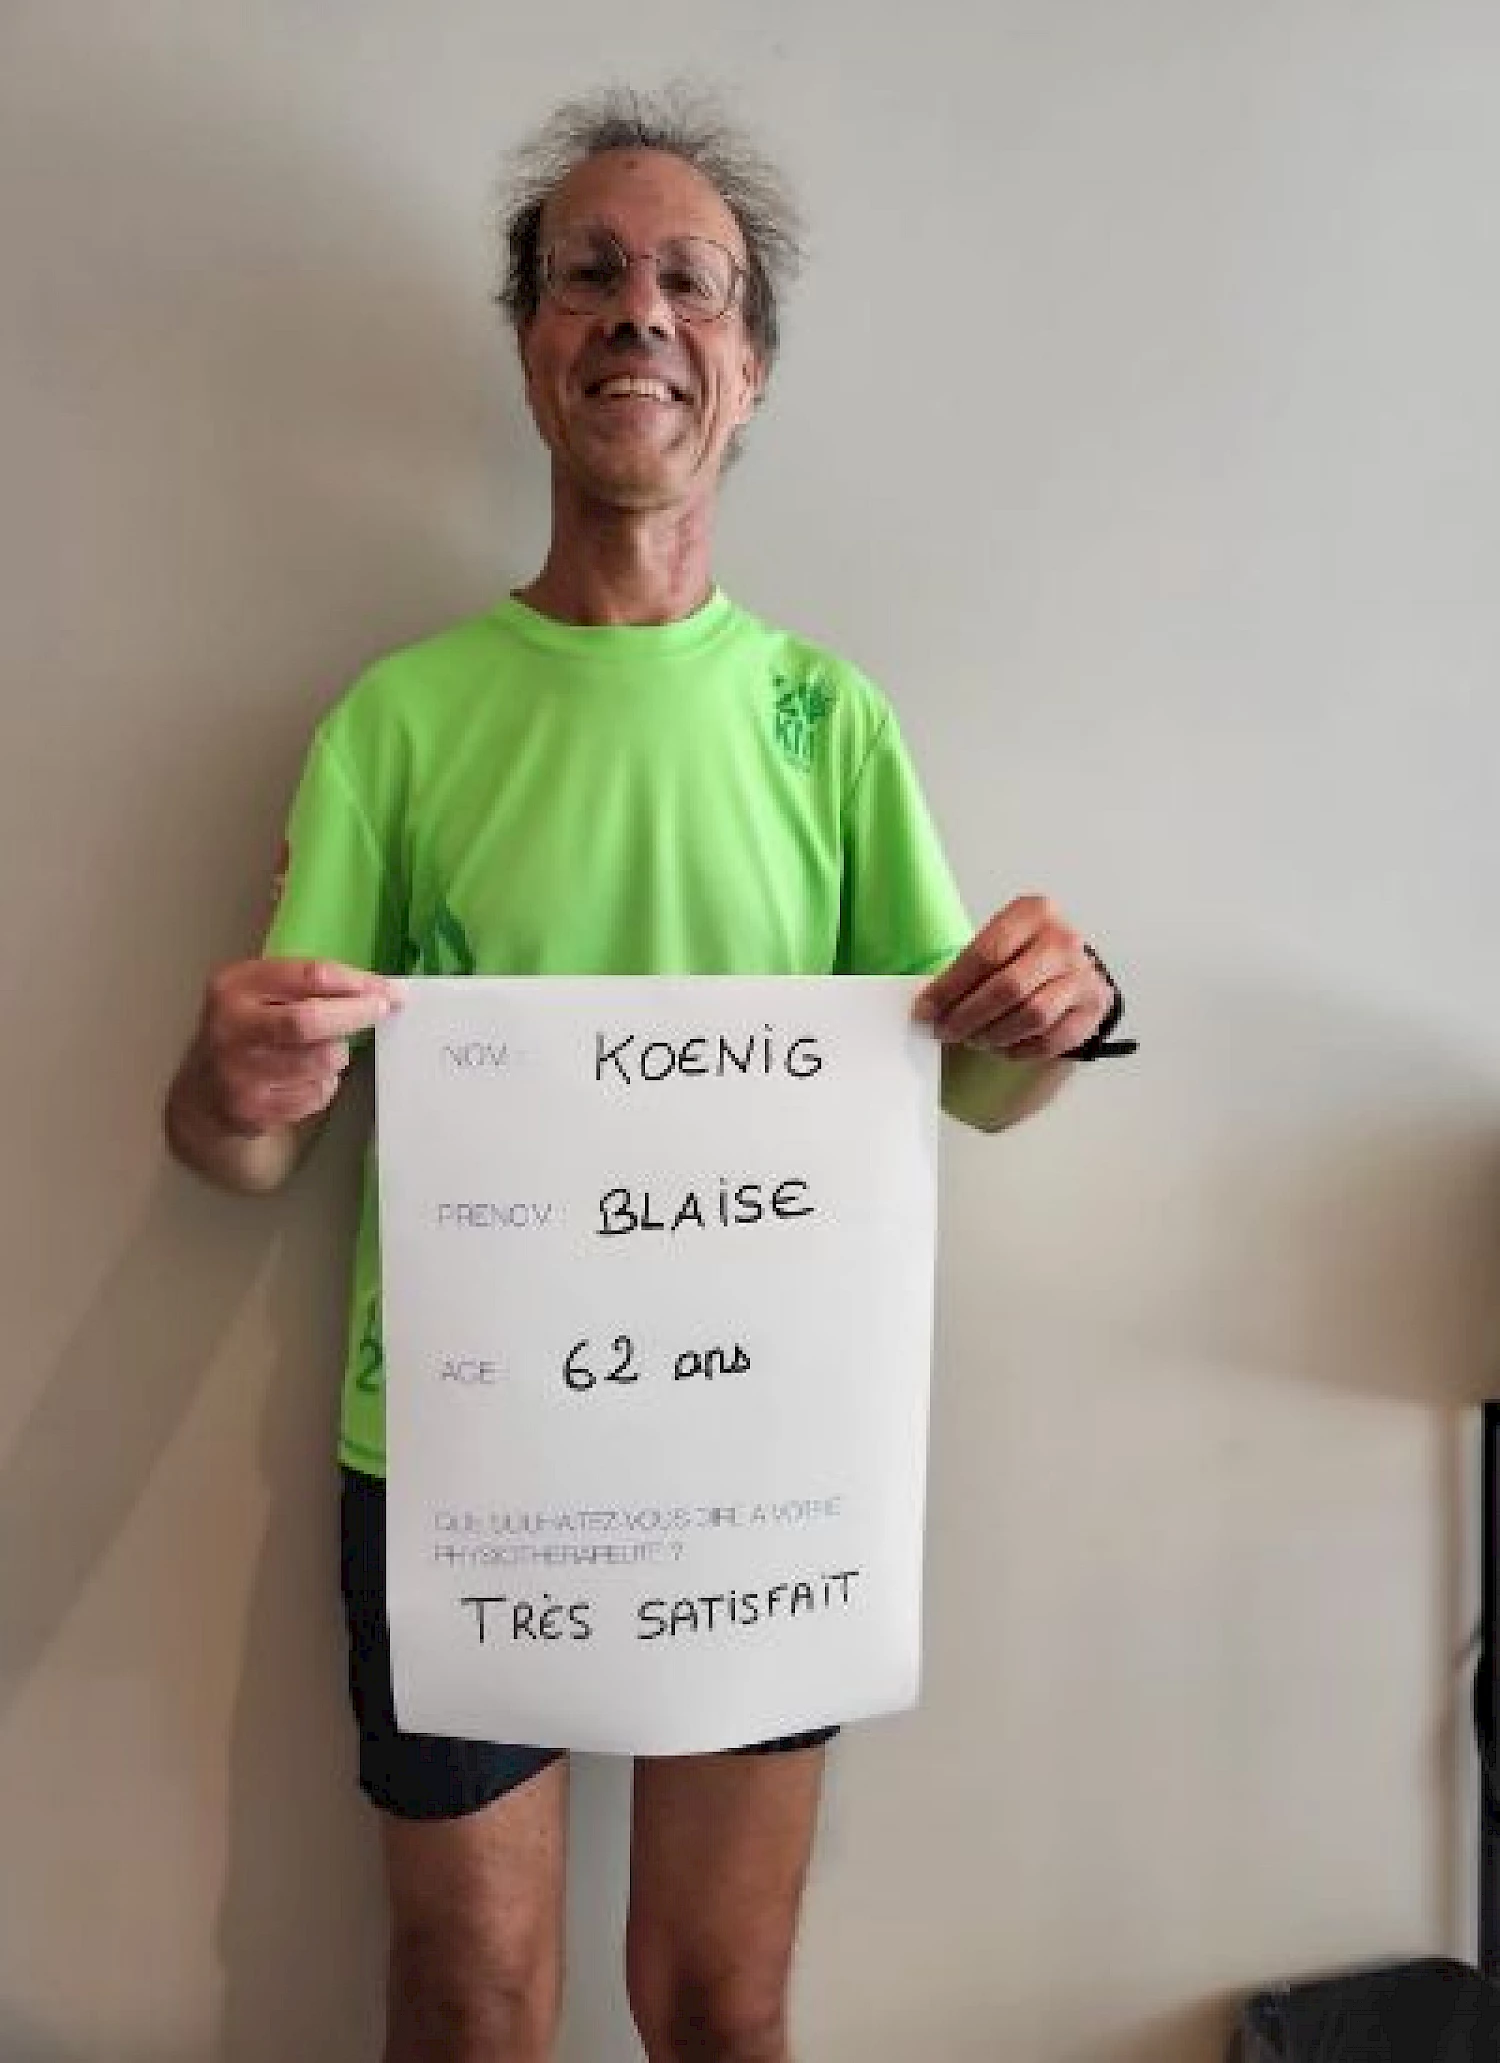 NOM : KOENiG
PRENOM : BLAiSE
AGE : 62 ans
QUE SOUHAITEZ-VOUS DIRE A VOTRE
PHYSIOTHERAPEUTE ?
TRÈS SATiSFAiT
20
KM
2